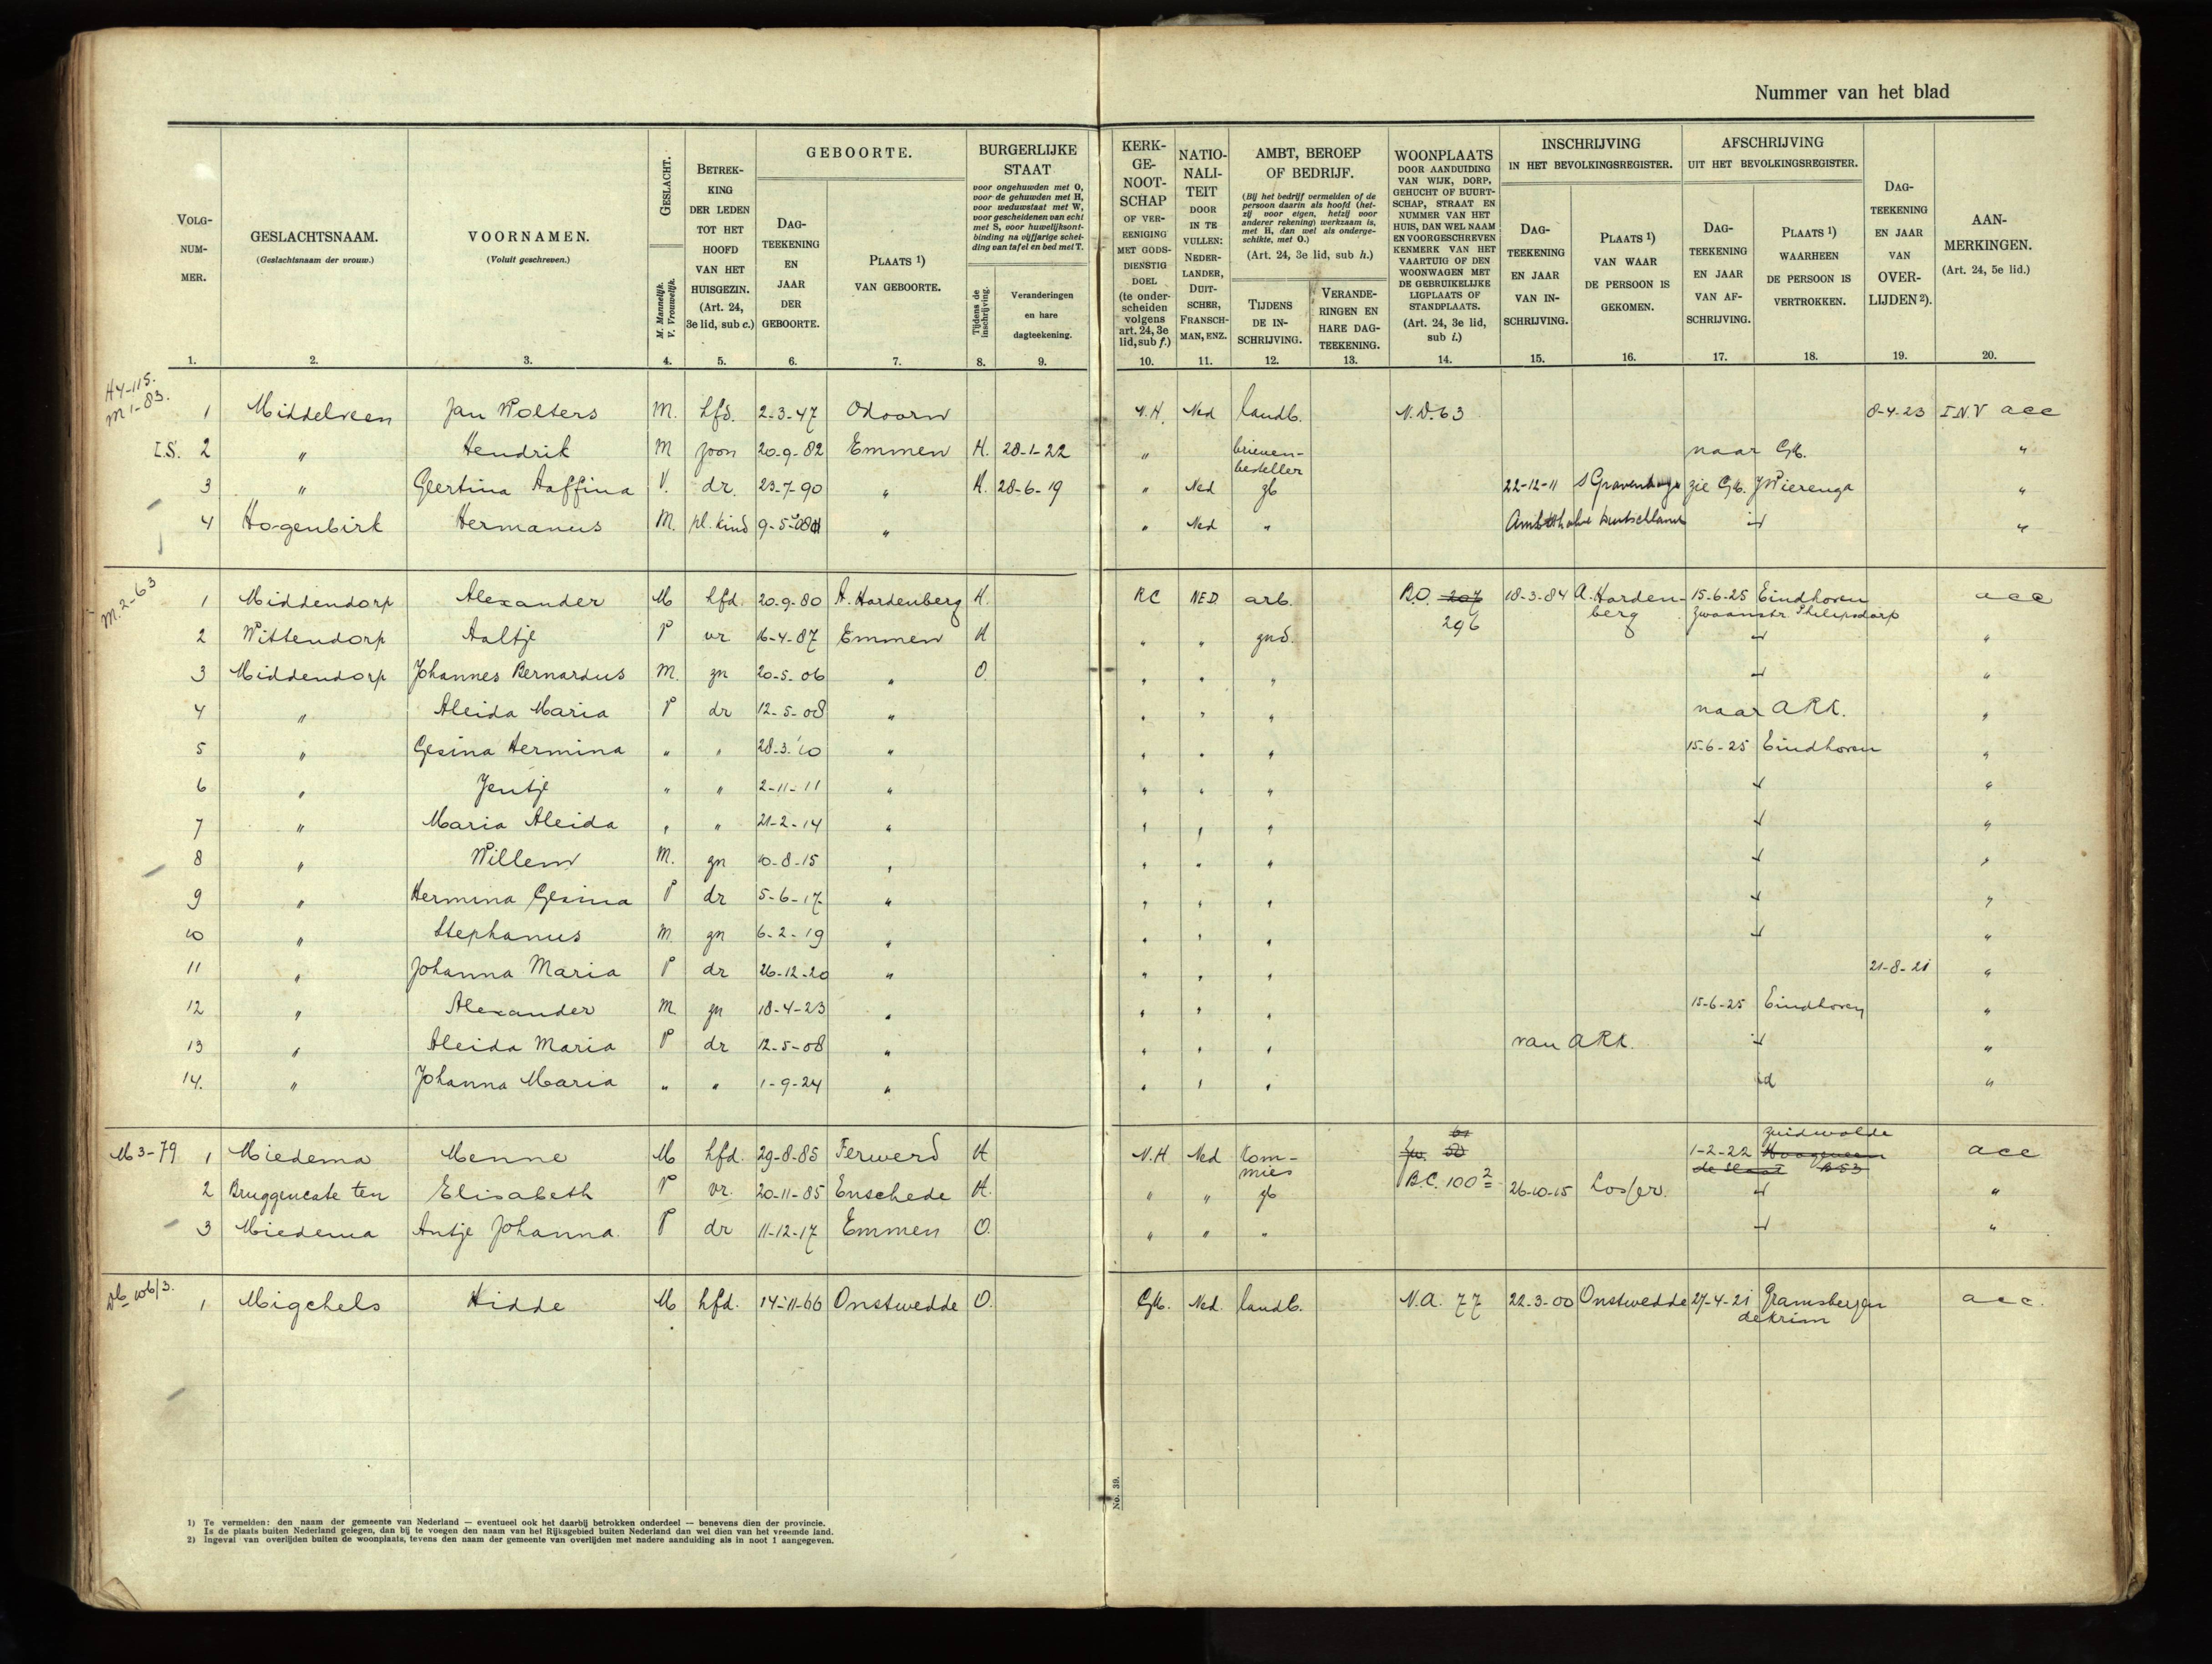 Nummer van het blad
VOLG-NUM-MER. GESLACHTSNAAM. (Geslachtsnaam der vrouw.) VOORNAMEN. (Voluit geschreven.) GESLACHT. M. Mannelijk. V. Vrouwelijk. BETREK-KING DER LEDEN TOT HET HOOFD VAN HET HUISGEZIN. (Art. 24, 3e lid, sub c.) GEBOORTE. DAG-TEEKENING EN JAAR DER GEBOORTE. PLAATS 1) VAN GEBOORTE. BURGERLIJKE STAAT voor ongehuwden met O, voor de gehuwden met H, voor weduwstaat met W, voor gescheidenen van echt met S, voor huwelijksont-binding na vijfjarige schei-ding van tafel en bed met T. Tijdens de inschrijving. Veranderingen en hare dagteekening.
KERK-GE-NOOT-SCHAP OF VER-EENIGING MET GODS-DIENSTIG DOEL (te onder-scheiden volgens art. 24, 3e lid, sub f.) NATIO-NALI-TEIT DOOR IN TE VULLEN: NEDER-LANDER, DUIT-SCHER, FRANSCH-MAN, ENZ. AMBT, BEROEP OF BEDRIJF. (Bij het bedrijf vermelden of de persoon daarin als hoofd (het-zij voor eigen, hetzij voor anderer rekening) werkzaam is, met H, dan wel als onderge-schikte, met O.) (Art. 24, 3e lid, sub h.) TIJDENS DE IN-SCHRIJVING. VERANDE-RINGEN EN HARE DAG-TEEKENING. WOONPLAATS DOOR AANDUIDING VAN WIJK, DORP, GEHUCHT OF BUURT-SCHAP, STRAAT EN NUMMER VAN HET HUIS, DAN WEL NAAM EN VOORGESCHREVEN KENMERK VAN HET VAARTUIG OF DEN WOONWAGEN MET DE GEBRUIKELIJKE LIGPLAATS OF STANDPLAATS. (Art. 24, 3e lid, sub i.) INSCHRIJVING IN HET BEVOLKINGSREGISTER. DAG-TEEKENING EN JAAR VAN IN-SCHRIJVING. PLAATS 1) VAN WAAR DE PERSOON IS GEKOMEN. AFSCHRIJVING UIT HET BEVOLKINGSREGISTER. DAG-TEEKENING EN JAAR VAN AF-SCHRIJVING. PLAATS 1) WAARHEEN DE PERSOON IS VERTROKKEN. DAG-TEEKENING EN JAAR VAN OVER-LIJDEN 2). AAN-MERKINGEN. (Art. 24, 5e lid.)
1. 2. 3. 4. 5. 6. 7. 8. 9. 10. 11. 12. 13. 14. 15. 16. 17. 18. 19. 20.
H4-115.
M1-83. 1 Middelveen Jan Wolters M. hfd. 2-3-47 Odoorn N.H. Ned landb. N.D. 63 8-4-23 I.N.V acc
I.S. 2 " Hendrik M zoon 20-9-82 Emmen H. 28-1-22 " brieven-besteller naar GK. "
3 " Geertina Aaffina V. dr. 23-7-90 " H. 28-6-19 " Ned zb 22-12-11 s Gravenhage zie GK. J Wierenga "
4 Hogenbirk Hermanus M. pl. kind 9-5-08 " " Ned " id "
M. 2-63 1 Middendorp Alexander M hfd. 20-9-80 A. Hardenberg H. RC NED. arb. B.O. 207 296 18-3-84 A. Harden-berg 15-6-25 Eindhoven Zwaanstr Philipsdorp acc
2 Wittendorp Aaltje V vr 16-4-87 Emmen H " " znd. id "
3 Middendorp Johannes Bernardus M. zn 20-5-06 " O. " " " id "
4 " Aleida Maria V dr 12-5-08 " " " " naar ARK. "
5 " Gesina Hermina " " 28-3-10 " " " " 15-6-25 Eindhoven "
6 " Jentje " " 2-11-11 " " " " id "
7 " Maria Aleida " " 21-2-14 " " " " id "
8 " Willem M. zn 10-8-15 " " " " id "
9 " Hermina Gesina V dr 5-6-17 " " " " id "
10 " Stephanus M. zn 6-2-19 " " " " id "
11 " Johanna Maria V dr 26-12-20 " " " " 21-8-21 "
12 " Alexander M zn 18-4-23 " " " " 15-6-25 Eindhoven "
13 " Aleida Maria V dr 12-5-08 " " " " van ARK. id "
14. " Johanna Maria " " 1-9-24 " " " " id "
M3-79 1 Miedema Menne M hfd. 29-8-85 Ferwerd H N.H Ned kom-mies B.C. 100² 1-2-22 zuidwolde Hoogeveen B53 acc
2 Bruggencate ten Elisabeth V vr. 20-11-85 Enschede H. " " zb 26-10-15 Losser. id "
3 Miedema Antje Johanna. V dr 11-12-17 Emmen O. " " " id "
106/3. 1 Migchels Hidde M hfd. 14-11-66 Onstwedde O. GK. Ned. landb. N.A. 77 22-3-00 Onstwedde 27-4-21 Gramsbergen dekrim acc.
No. 39.
1) Te vermelden: den naam der gemeente van Nederland — eventueel ook het daarbij betrokken onderdeel — benevens dien der provincie.
Is de plaats buiten Nederland gelegen, dan bij te voegen den naam van het Rijksgebied buiten Nederland dan wel dien van het vreemde land.
2) Ingeval van overlijden buiten de woonplaats, tevens den naam der gemeente van overlijden met nadere aanduiding als in noot 1 aangegeven.